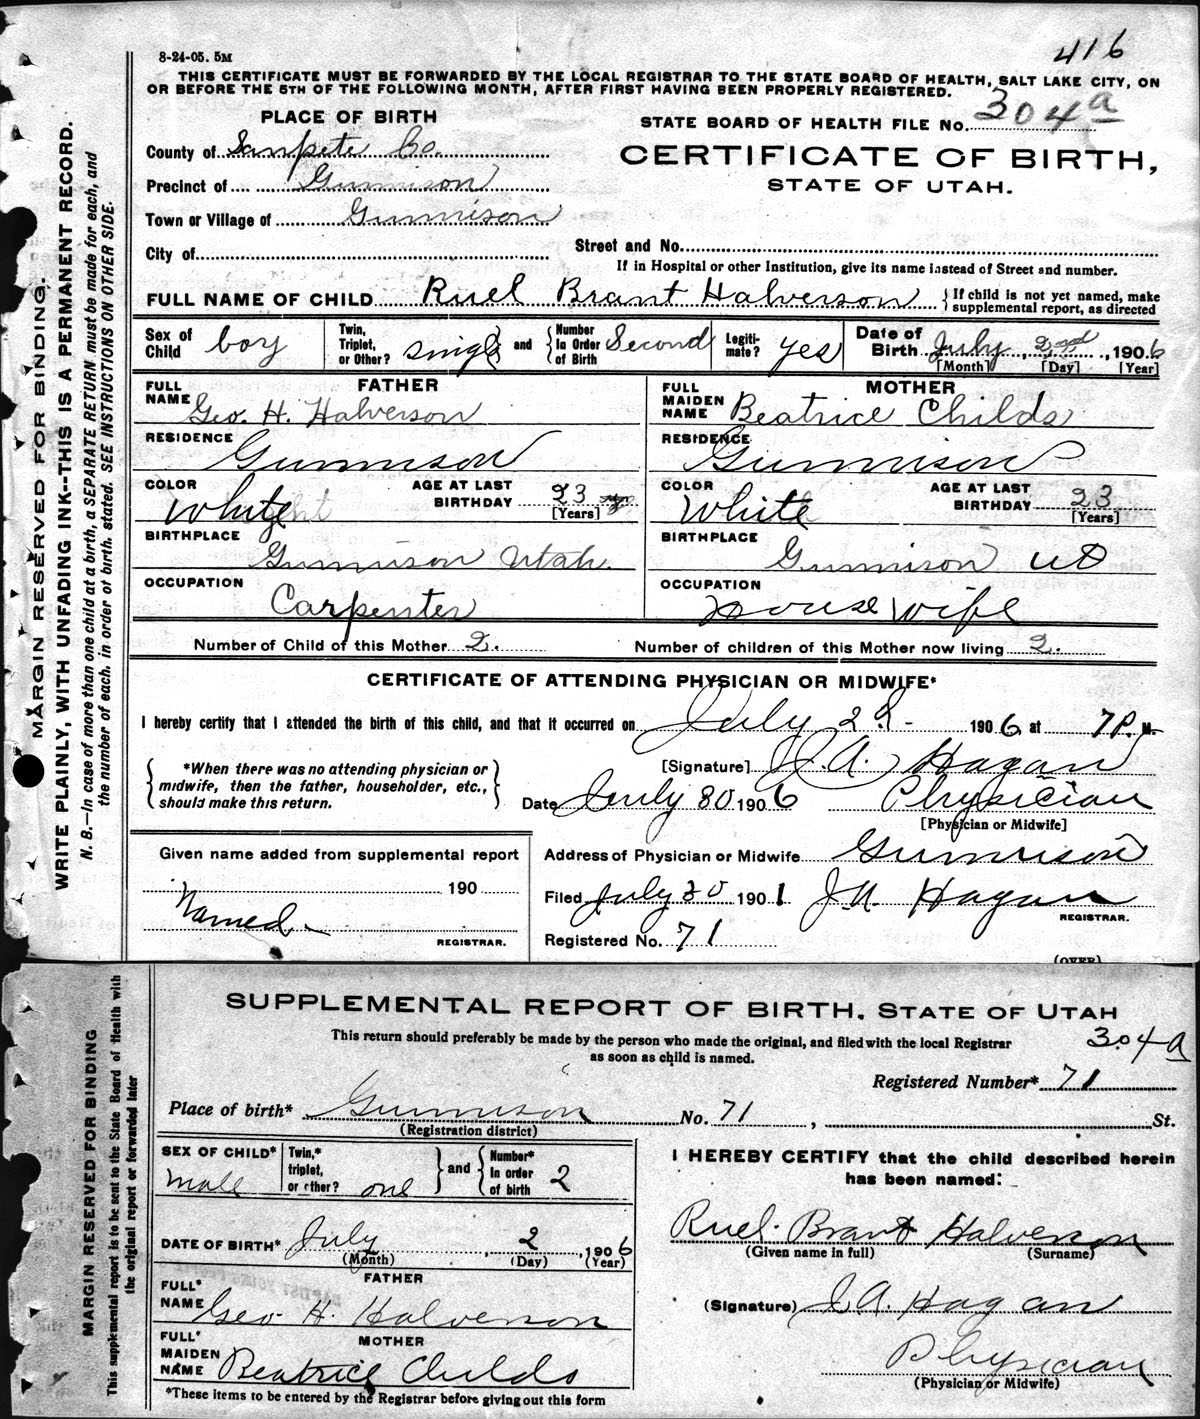 416
8-24-05. 5M
THIS CERTIFICATE MUST BE FORWARDED BY THE LOCAL REGISTRAR TO THE STATE BOARD OF HEALTH, SALT LAKE CITY, ON
OR BEFORE THE 5TH OF THE FOLLOWING MONTH, AFTER FIRST HAVING BEEN PROPERLY REGISTERED.
PLACE OF BIRTH
STATE BOARD OF HEALTH FILE No. 304a
County of Sanpete Co.
CERTIFICATE OF BIRTH,
STATE OF UTAH.
Precinct of Gunnison
Town or Village of Gunnison
City of
Street and No.
If in Hospital or other Institution, give its name instead of Street and number.
FULL NAME OF CHILD Ruel Brant Halverson { If child is not yet named, make supplemental report, as directed
Sex of Child boy Twin, Triplet, or Other? single and Number In Order of Birth Second Legiti-mate? yes Date of Birth July, 2nd, 1906
[Month] [Day] [Year]
FATHER MOTHER
FULL NAME Geo. H. Halverson FULL MAIDEN NAME Beatrice Childs
RESIDENCE Gunnison RESIDENCE Gunnison
COLOR White AGE AT LAST BIRTHDAY 23 [Years] COLOR White AGE AT LAST BIRTHDAY 23 [Years]
BIRTHPLACE Gunnison Utah. BIRTHPLACE Gunnison
OCCUPATION Carpenter OCCUPATION House wife
Number of Child of this Mother 2. Number of children of this Mother now living 2.
CERTIFICATE OF ATTENDING PHYSICIAN OR MIDWIFE*
I hereby certify that I attended the birth of this child, and that it occurred on July 2 1906 at 7 P. M.
*When there was no attending physician or
midwife, then the father, householder, etc.,
should make this return.
[Signature] J. A. Hagan
Date July 30 1906 Physician
[Physician or Midwife]
Given name added from supplemental report
Address of Physician or Midwife Gunnison
190
Named
REGISTRAR.
Filed July 30 1901 J. A. Hagan
REGISTRAR.
Registered No. 71
(OVER)
MARGIN RESERVED FOR BINDING.
WRITE PLAINLY, WITH UNFADING INK--THIS IS A PERMANENT RECORD.
N. B.—In case of more than one child at a birth, a SEPARATE RETURN must be made for each, and
the number of each, in order of birth, stated. SEE INSTRUCTIONS ON OTHER SIDE.
SUPPLEMENTAL REPORT OF BIRTH, STATE OF UTAH
304a
This return should preferably be made by the person who made the original, and filed with the local Registrar
as soon as child is named.
Registered Number* 71
Place of birth* Gunnison No. 71, St.
(Registration district)
SEX OF CHILD* Male Twin,* triplet, or other? one and Number* In order of birth 2
DATE OF BIRTH* July, 2, 1906
(Month) (Day) (Year)
FATHER
FULL* NAME Geo H. Halverson
MOTHER
FULL* MAIDEN NAME Beatrice Childs
*These items to be entered by the Registrar before giving out this form
I HEREBY CERTIFY that the child described herein
has been named:
Ruel Brant Halverson
(Given name in full) (Surname)
(Signature) J. A. Hagan
Physician
(Physician or Midwife)
MARGIN RESERVED FOR BINDING
This supplemental report is to be sent to the State Board of Health with
the original report or forwarded later